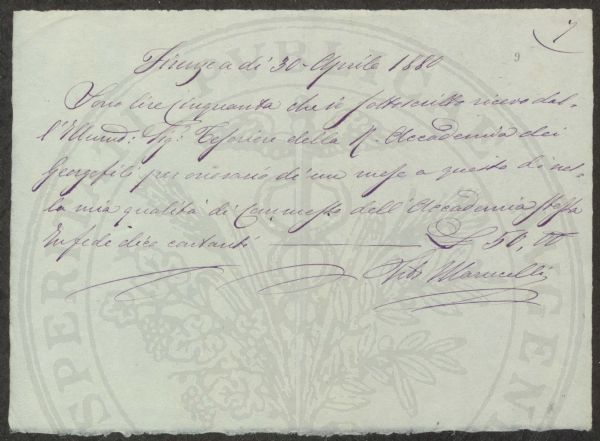 7
9
Firenze a dì 30 Aprile 1880
Sono lire Cinquanta che io sottoscritto ricevo dal-
l'Illumo: Sig.r Tesoriere della R. Accademia dei
Georgofili per onorario di un mese a questo dì nel-
la mia qualità di Commesso dell'Accademia stessa
In fede dico contanti £ 50,00
Marucelli